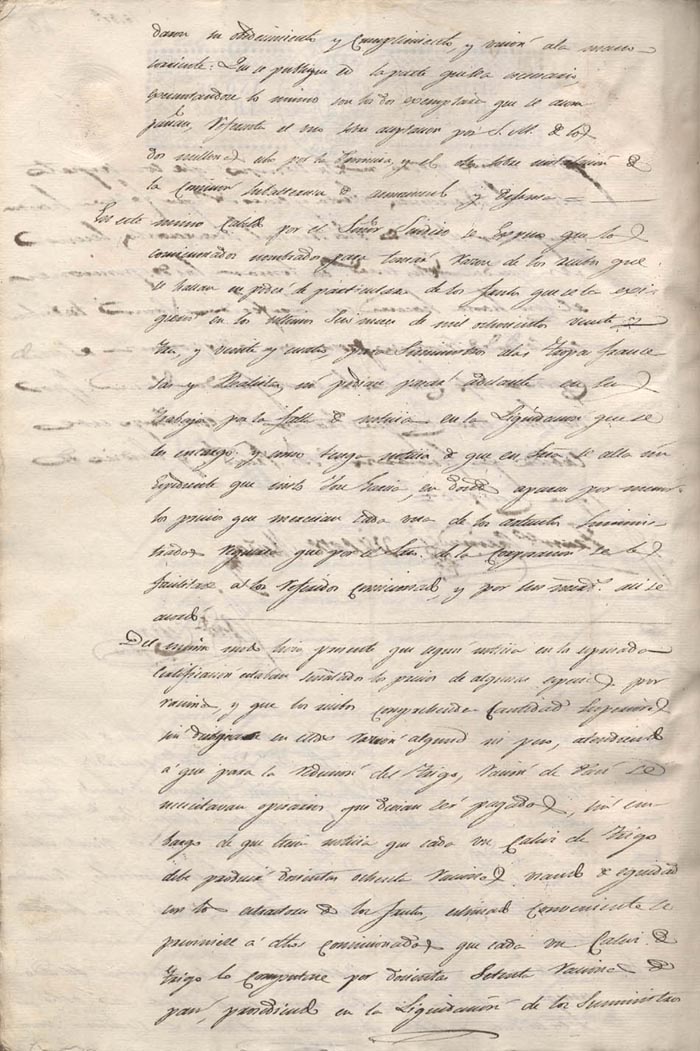 daron su obedecimiento y Cumplimiento, y unión a la mano
corriente: Que se publique de la parte que sea necesario,
egecutandose lo mismo con los dos exemplares que se acom
pañan, Referente el uno sobre por S. M. de los
dos millones por la y el otro sobre instalación de
la Comisión de y defensa
En este mismo Cabildo por el Señor Sindico se Expuso que los
comisionados nombrados para tomar razon de los recibos que
se hallan en poder de particulares de los Santos que se la exi-
gieron en los ultimos Seis meses de mil ochocientos veinte y
tres, y veinte y cuatro, para Suministros a las tropas france
sas y Realistas, no podian pasar adelante en sus
trabajos por la falta de noticia en la Liquidación que se
les encargo; y como tenga noticia de que en se alla un
Expediente que José Garcia, en donde aparece por menor
los precios que merecian cada uno de los articulos Suminis-
trados que por el de la Corporacion se le
facilitase a los Referidos Comisionados, y por sus asi se
acordó
Del mismo modo hizo presente que segun noticia en la espresada
Certificación estaban señalados los precios de algunas especies por
raciones, y que los recibos comprehenden Cantidades
sin en ellos racion alguna ni peso, atendiendo
á que para la reducción del Trigo, Ración de Pan se
necesitavan operarios que devian ser pagados, sin em-
bargo de que tenia noticia que cada un Cahiz de Trigo
debe producir doscientas ochenta Raciones, usando de equidad
con los de los Santos, estimaba Conveniente se
previniese á dhos comisionados que cada un Cahiz de
Trigo lo Computase por doscientas Setenta Raciones de
pan, procediendo en la Liquidación de los Suministros